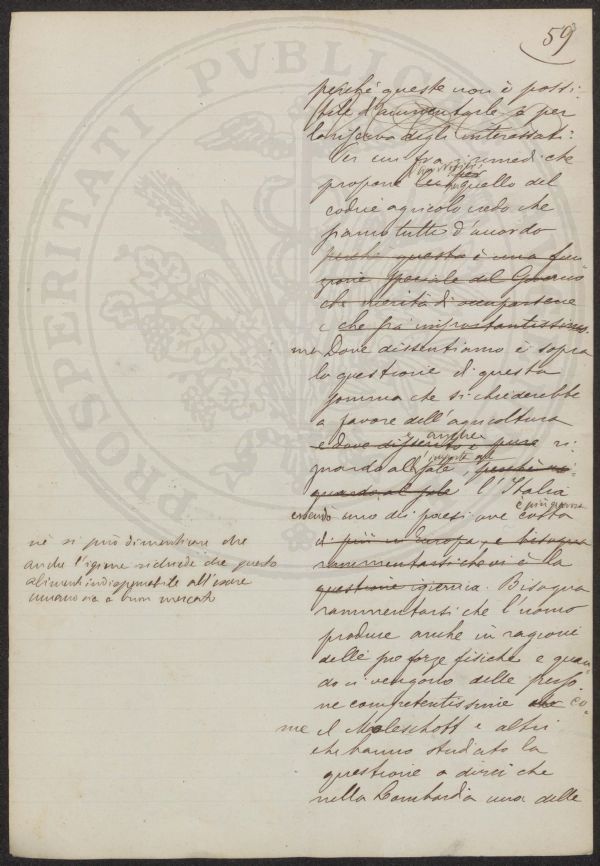 59
perché queste non è possi-
bile d'aumentarle o per
la riserva degli interessati:
Per cui fra i rimedi che
propone quello del
codice agricolo vedo che
siamo tutti d'accordo
perché questa è una fun
zione speciale del Governo
che merita di occuparsene
e che fra importantissimo.
ma Dove dissentiamo è sopra
la questione di questa
somma che si chiederebbe
a favore dell'agricoltura
anche
e dove dissento è pure ri
imposta sul
guardo al sale, perché ri-
guardo al sale l'Italia
è più gravosa
essendo uno dei paesi ove costa
di più in Europa, e bisogna
rammentarsi che vi è la
questione igienica. Bisogna
rammentarsi che l'uomo
produce anche in ragione
delle sue forze fisiche e quan-
do ci vengono delle perso
ne competentissime co-
me il Moleschott e altri
che hanno studiato la
questione a dirci che
nella Lombardia una delle
né si può dimenticare che
anche l'igiene richiede che questo
alimento indispensabile all'essere
umano sia a buon mercato
PROSPERITATI PVBLICAE